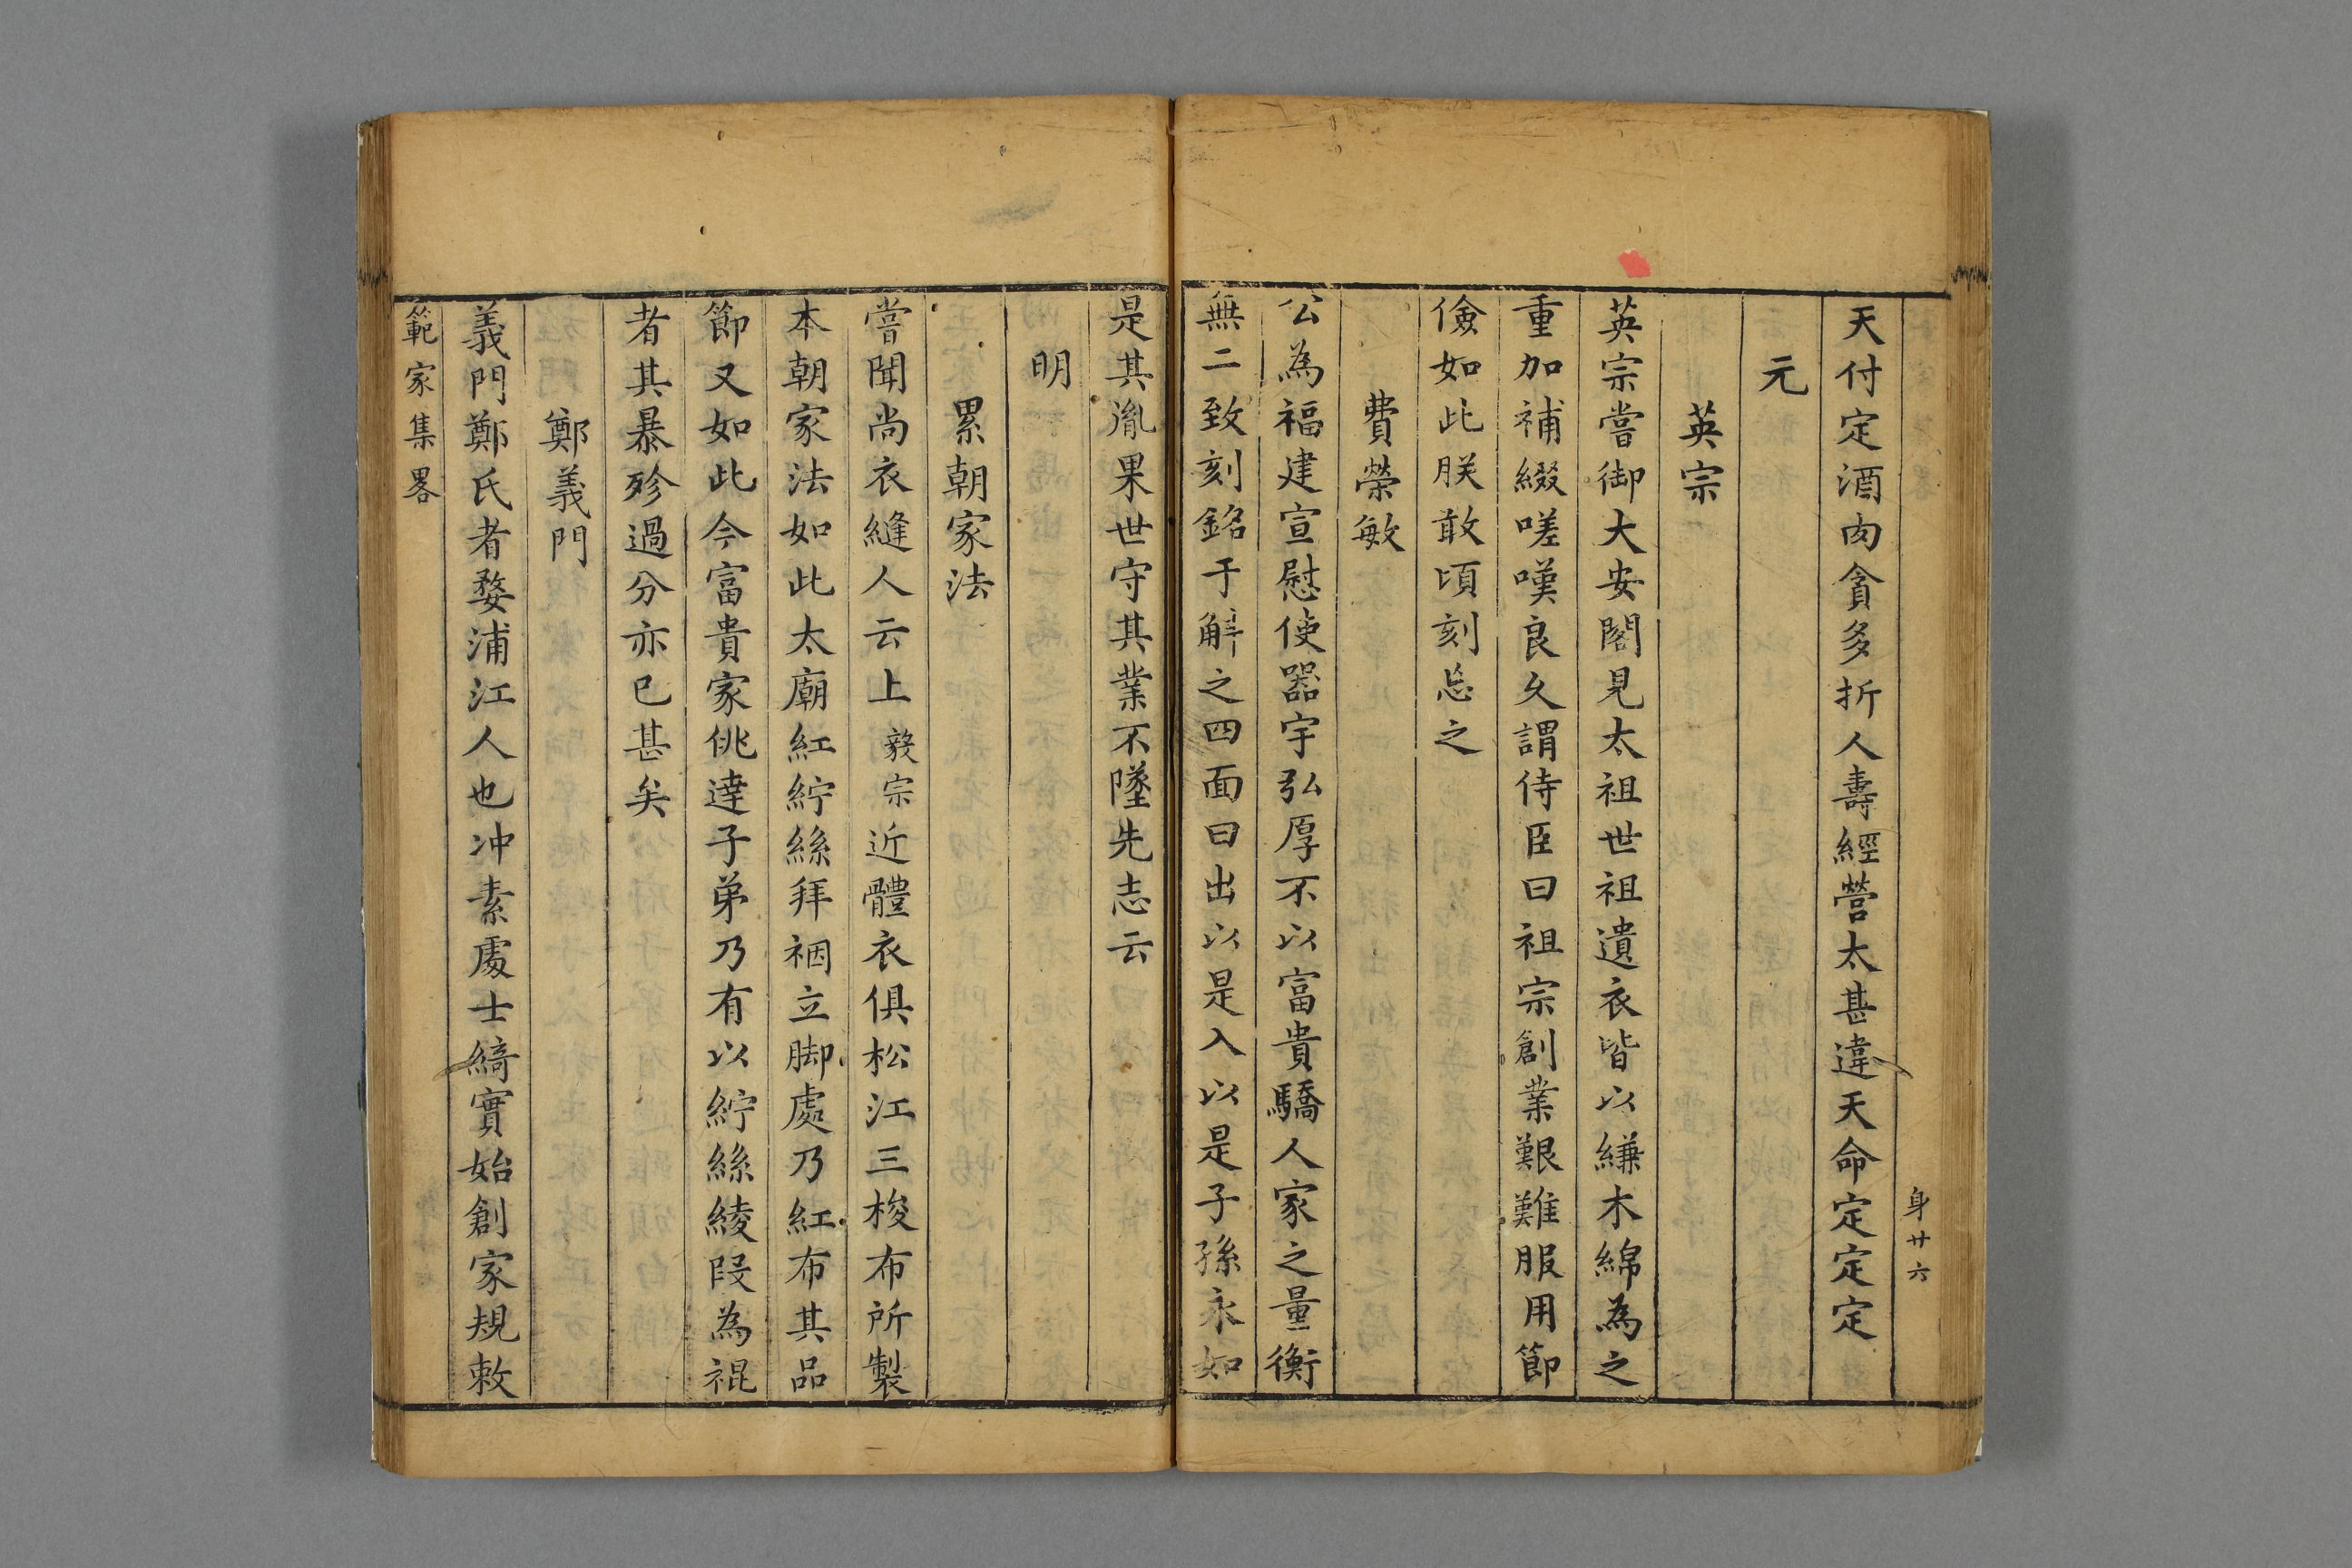 身廿六
天付定酒肉貪多折人壽經營太甚違天命定定定
元
英宗
英宗嘗御大安閣見太祖世祖遺衣皆以縑木綿為之
重加補綴嗟嘆良久謂侍臣曰祖宗創業艱難服用節
儉如此朕敢頃刻忘之
費榮敏
公為福建宣慰使器宇弘厚不以富貴驕人家之量衡
無二致刻銘于斛之四面曰出以是入以是子孫永如
是其胤果世守其業不墜先志云
明
累朝家法
嘗聞尚衣縫人云上毅宗近體衣俱松江三梭布所製
本朝家法如此太廟紅紵絲拜裀立脚處乃紅布其品
節又如此今富貴家佻達子弟乃有以紵絲綾段為裩
者其暴殄過分亦已甚矣
鄭義門
義門鄭氏者婺浦江人也冲素處士綺實始創家規敕
範家集畧